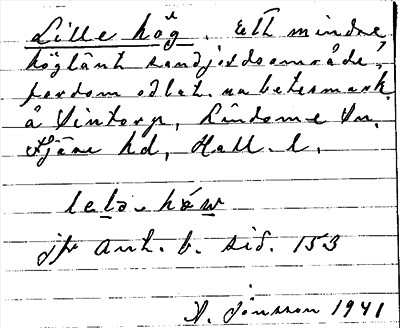 Lille hög. Ett mindre
höglänt sandjordsområde,
fordom odlat. nu betesmark
å Sintorp, Lindome sn,
Fjäre hd, Hall. l.
jfr ant. b. sid. 153
A. Jönsson 1941